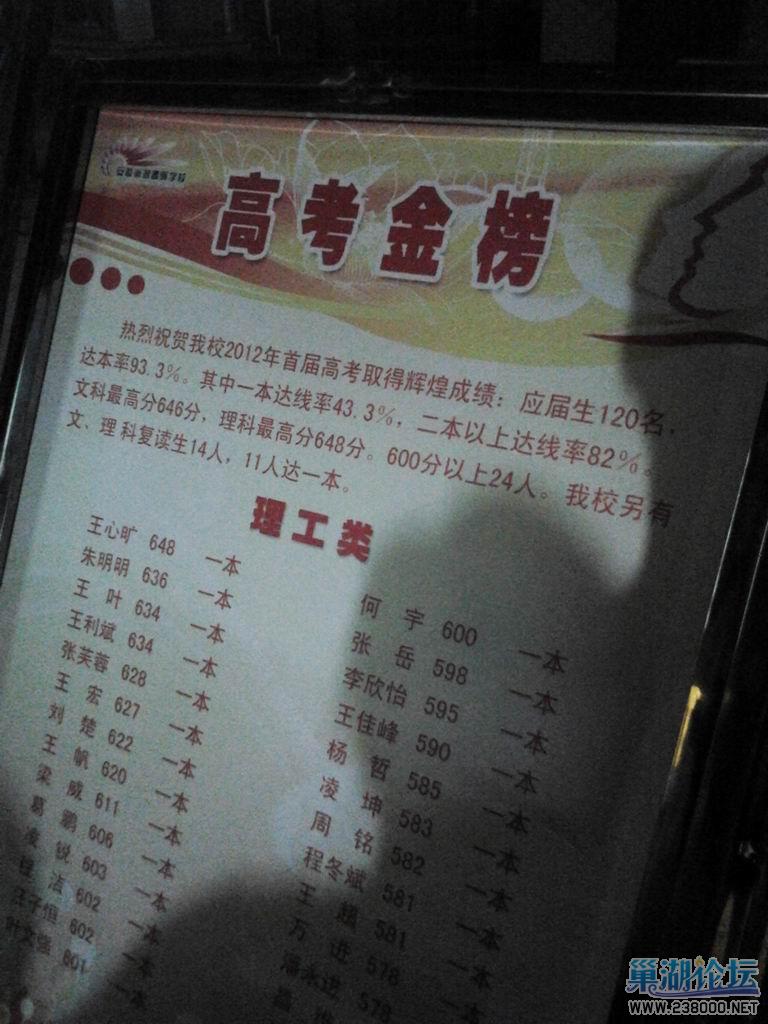 高考金榜
热烈祝贺我校2012年首届高考取得辉煌成绩：应届生120名，
达本率93.3%。其中一本达线率43.3%，二本以上达线率82%。
文科最高分646分，理科最高分648分。600分以上24人。我校另有
文、理科复读生14人，11人达一本。
理工类
王心旷 648 一本
朱明明 636 一本
王叶 634 一本
王利斌 634 一本
张芙蓉 628 一本
王宏 627 一本
刘楚 622 一本
王帆 620 一本
梁威 611 一本
葛鹏 606 一本
凌锐 603 一本
洁 602 一本
汪子恒 602 一本
叶文强 601 一本
何宇 600 一本
张岳 598 一本
李欣怡 595 一本
王佳峰 590 一本
杨哲 585 一本
凌坤 583 一本
周铭 582 一本
程冬斌 581 一本
王 581 一本
万进 578 一本
巢湖论坛
WWW.238000.NET